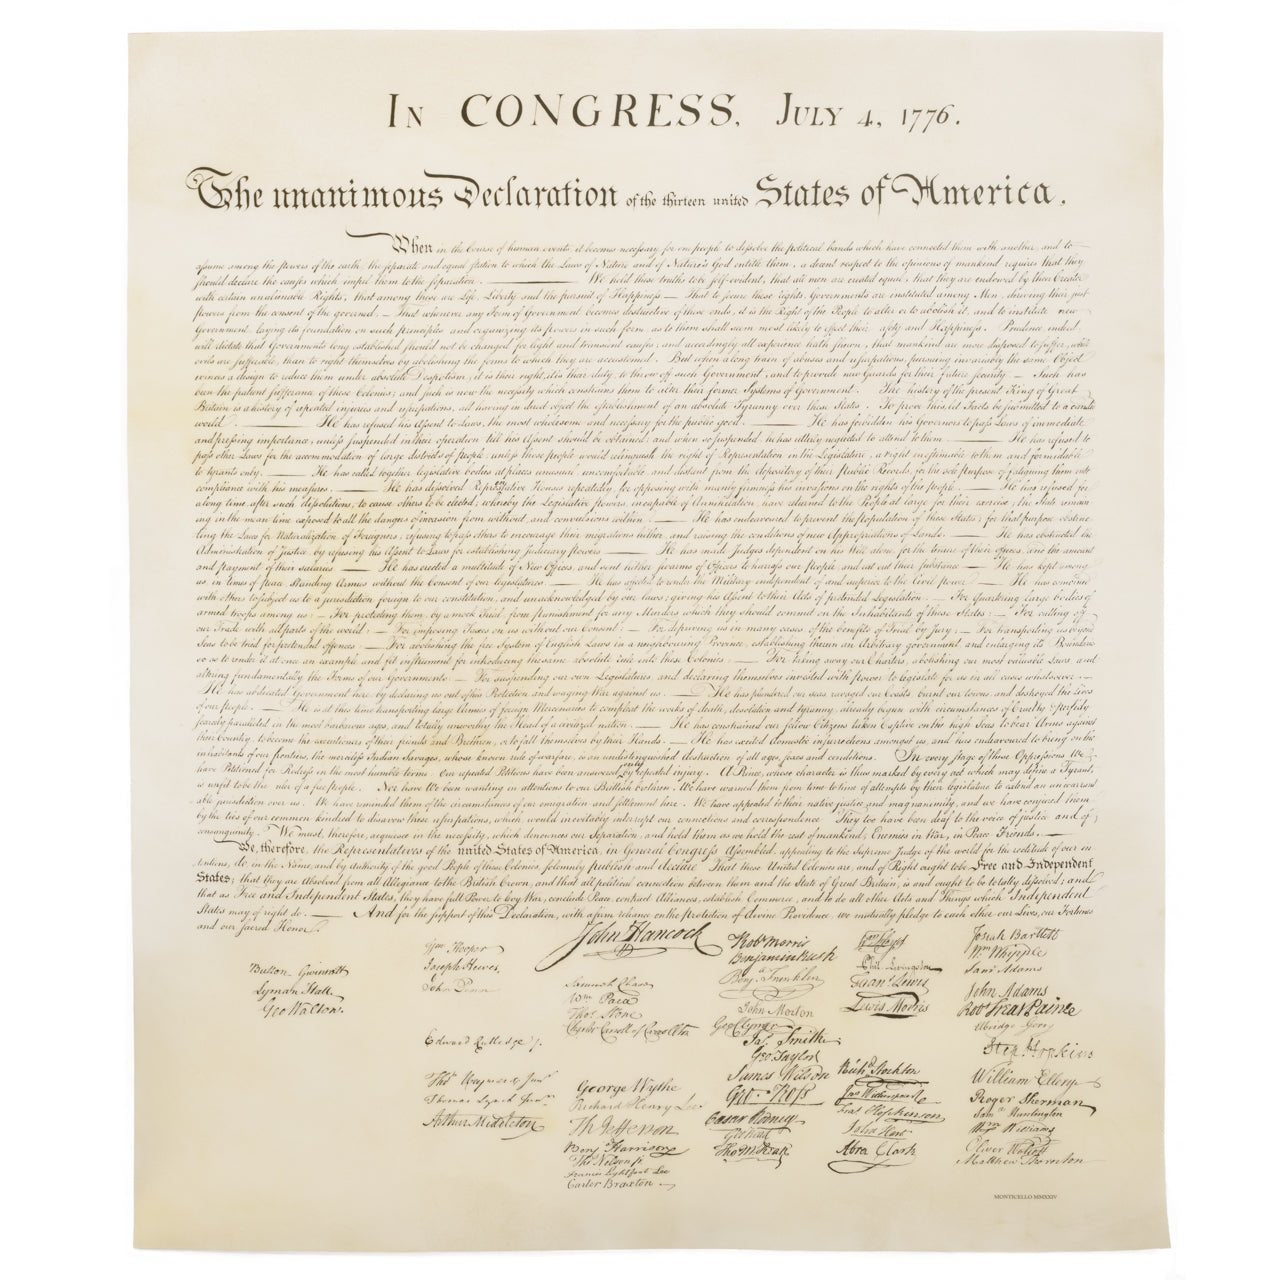 IN CONGRESS, JULY 4, 1776.
The unanimous Declaration of the thirteen united States of America.
When in the Course of human events, it becomes necessary for one people to dissolve the political bands which have connected them with another, and to
assume among the powers of the earth, the separate and equal station to which the Laws of Nature and of Nature's God entitle them, a decent respect to the opinions of mankind requires that they
should declare the causes which impel them to the separation. — We hold these truths to be self-evident, that all men are created equal, that they are endowed by their Creator
with certain unalienable Rights, that among these are Life, Liberty and the pursuit of Happiness. — That to secure these rights, Governments are instituted among Men, deriving their just
powers from the consent of the governed, — That whenever any Form of Government becomes destructive of these ends, it is the Right of the People to alter or to abolish it, and to institute new
Government, laying its foundation on such principles and organizing its powers in such form, as to them shall seem most likely to effect their Safety and Happiness. Prudence, indeed,
will dictate that Governments long established should not be changed for light and transient causes; and accordingly all experience hath shewn, that mankind are more disposed to suffer, while
evils are sufferable, than to right themselves by abolishing the forms to which they are accustomed. But when a long train of abuses and usurpations, pursuing invariably the same Object
evinces a design to reduce them under absolute Despotism, it is their right, it is their duty, to throw off such Government, and to provide new Guards for their future security. — Such has
been the patient sufferance of these Colonies; and such is now the necessity which constrains them to alter their former Systems of Government. The history of the present King of Great
Britain is a history of repeated injuries and usurpations, all having in direct object the establishment of an absolute Tyranny over these States. To prove this, let Facts be submitted to a candid
world. — He has refused his Assent to Laws, the most wholesome and necessary for the public good. — He has forbidden his Governors to pass Laws of immediate
and pressing importance, unless suspended in their operation till his Assent should be obtained; and when so suspended, he has utterly neglected to attend to them. — He has refused to
pass other Laws for the accommodation of large districts of people, unless those people would relinquish the right of Representation in the Legislature, a right inestimable to them and formidable
to tyrants only. — He has called together legislative bodies at places unusual, uncomfortable, and distant from the depository of their Public Records, for the sole purpose of fatiguing them into
compliance with his measures. — He has dissolved Representative Houses repeatedly, for opposing with manly firmness his invasions on the rights of the people. — He has refused for
a long time, after such dissolutions, to cause others to be elected; whereby the Legislative powers, incapable of Annihilation, have returned to the People at large for their exercise; the State remain-
ing in the mean time exposed to all the dangers of invasion from without, and convulsions within. — He has endeavoured to prevent the population of these States; for that purpose obstruc-
ting the Laws for Naturalization of Foreigners; refusing to pass others to encourage their migrations hither, and raising the conditions of new Appropriations of Lands. — He has obstructed the
Administration of Justice, by refusing his Assent to Laws for establishing Judiciary powers. — He has made Judges dependent on his Will alone, for the tenure of their offices, and the amount
and payment of their salaries. — He has erected a multitude of New Offices, and sent hither swarms of Officers to harrass our people, and eat out their substance. — He has kept among
us, in times of peace, Standing Armies without the Consent of our legislatures. — He has affected to render the Military independent of and superior to the Civil power. — He has combined
with others to subject us to a jurisdiction foreign to our constitution, and unacknowledged by our laws; giving his Assent to their Acts of pretended Legislation: — For Quartering large bodies of
armed troops among us: — For protecting them, by a mock Trial, from punishment for any Murders which they should commit on the Inhabitants of these States: — For cutting off
our Trade with all parts of the world: — For imposing Taxes on us without our Consent: — For depriving us in many cases, of the benefits of Trial by Jury: — For transporting us beyond
Seas to be tried for pretended offences: — For abolishing the free System of English Laws in a neighbouring Province, establishing therein an Arbitrary government, and enlarging its Boundaries
so as to render it at once an example and fit instrument for introducing the same absolute rule into these Colonies: — For taking away our Charters, abolishing our most valuable Laws, and
altering fundamentally the Forms of our Governments: — For suspending our own Legislatures, and declaring themselves invested with power to legislate for us in all cases whatsoever. —
He has abdicated Government here, by declaring us out of his Protection and waging War against us. — He has plundered our seas, ravaged our Coasts, burnt our towns, and destroyed the Lives
of our people. — He is at this time transporting large Armies of foreign Mercenaries to compleat the works of death, desolation and tyranny, already begun with circumstances of Cruelty & perfidy
scarcely paralleled in the most barbarous ages, and totally unworthy the Head of a civilized nation. — He has constrained our fellow Citizens taken Captive on the high Seas to bear Arms against
their Country, to become the executioners of their friends and Brethren, or to fall themselves by their Hands. — He has excited domestic insurrections amongst us, and has endeavoured to bring on the
inhabitants of our frontiers, the merciless Indian Savages, whose known rule of warfare, is an undistinguished destruction of all ages, sexes and conditions. In every stage of these Oppressions We
have Petitioned for Redress in the most humble terms: Our repeated Petitions have been answered only by repeated injury. A Prince, whose character is thus marked by every act which may define a Tyrant,
is unfit to be the ruler of a free people. Nor have We been wanting in attentions to our Brittish brethren. We have warned them from time to time of attempts by their legislature to extend an unwarrant-
able jurisdiction over us. We have reminded them of the circumstances of our emigration and settlement here. We have appealed to their native justice and magnanimity, and we have conjured them
by the ties of our common kindred to disavow these usurpations, which, would inevitably interrupt our connections and correspondence. They too have been deaf to the voice of justice and of
consanguinity. We must, therefore, acquiesce in the necessity, which denounces our Separation, and hold them, as we hold the rest of mankind, Enemies in War, in Peace Friends. —
We, therefore, the Representatives of the united States of America, in General Congress, Assembled, appealing to the Supreme Judge of the world for the rectitude of our in-
tentions, do, in the Name, and by Authority of the good People of these Colonies, solemnly publish and declare, That these United Colonies are, and of Right ought to be Free and Independent
States; that they are Absolved from all Allegiance to the British Crown, and that all political connection between them and the State of Great Britain, is and ought to be totally dissolved; and
that as Free and Independent States, they have full Power to levy War, conclude Peace, contract Alliances, establish Commerce, and to do all other Acts and Things which Independent
States may of right do. — And for the support of this Declaration, with a firm reliance on the protection of divine Providence, we mutually pledge to each other our Lives, our Fortunes
and our sacred Honor.
Button Gwinnett
Lyman Hall
Geo Walton.
Wm Hooper
Joseph Hewes,
John Penn
Edward Rutledge /.
Thos Heyward Junr.
Thomas Lynch Junr.
Arthur Middleton
John Hancock
Samuel Chase
Wm Paca
Thos Stone
Charles Carroll of Carrollton
George Wythe
Richard Henry Lee
Th Jefferson
Benj Harrison
Thos Nelson jr.
Francis Lightfoot Lee
Carter Braxton
Robt Morris
Benjamin Rush
Benj. Franklin
John Morton
Geo Clymer
Jas. Smith
Geo. Taylor
James Wilson
Geo. Ross
Caesar Rodney
Geo Read
Tho M:Kean
Wm Floyd
Phil. Livingston
Frans. Lewis
Lewis Morris
Richd. Stockton
Jno Witherspoon
Fras. Hopkinson
John Hart
Abra Clark
Josiah Bartlett
Wm Whipple
Saml Adams
John Adams
Robt Treat Paine
Elbridge Gerry
Step. Hopkins
William Ellery
Roger Sherman
Saml Huntington
Wm Williams
Oliver Wolcott
Matthew Thornton
MONTICELLO MMXXIV